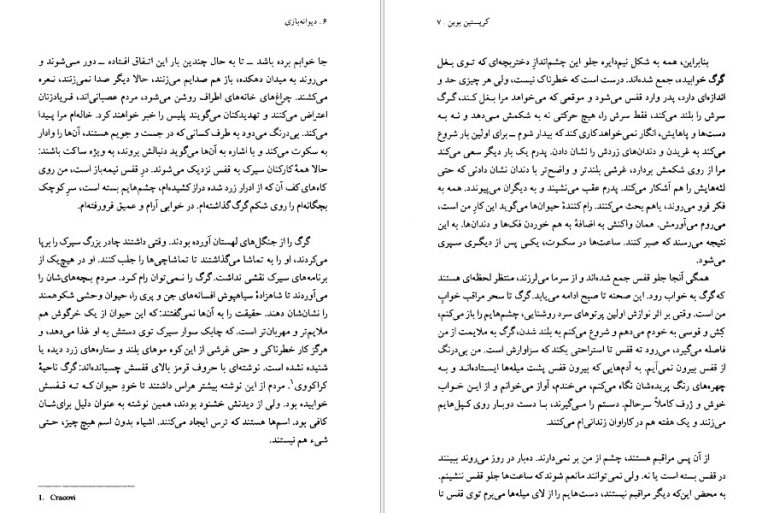 ۶ . دیوانه‌بازی
جا خوابم برده باشد ــ تا به حال چندین بار این اتفاق افتاده ــ دور می‌شوند و
می‌روند به میدان دهکده، باز هم صدایم می‌زنند، حالا دیگر صدا نمی‌زنند، نعره
می‌کشند. چراغ‌های خانه‌های اطراف روشن می‌شود، مردم عصبانی‌اند، فریادزنان
اعتراض می‌کنند و تهدیدکنان می‌گویند پلیس را خبر خواهند کرد. خاله‌ام مرا پیدا
می‌کند. بی‌درنگ می‌دود به طرف کسانی که در جست و جویم هستند، آن‌ها را وادار
به سکوت می‌کند و با اشاره به آن‌ها می‌گوید دنبالش بروند، به ویژه ساکت باشند:
حالا همهٔ کارکنان سیرک به قفس نزدیک می‌شوند. درِ قفس نیمه‌باز است، من روی
کاه‌های کف آن که از ادرار زرد شده دراز کشیده‌ام، چشم‌هایم بسته است، سرِ کوچک
بچگانه‌ام را روی شکم گرگ گذاشته‌ام. در خوابی آرام و عمیق فرورفته‌ام.
گرگ را از جنگل‌های لهستان آورده بودند. وقتی داشتند چادر بزرگ سیرک را برپا
می‌کردند، او را به تماشا می‌گذاشتند تا تماشاچی‌ها را جلب کنند. او در هیچ‌یک از
برنامه‌های سیرک نقشی نداشت. گرگ را نمی‌توان رام کرد. مردم بچه‌های‌شان را
می‌آوردند تا شاهزادهٔ سیاهپوش افسانه‌های جن و پری را، حیوان وحشی شکوهمند
را نشان‌شان دهند. حقیقت را به آن‌ها نمی‌گفتند: که این حیوان از یک خرگوش هم
ملایم‌تر و مهربان‌تر است. که چابک سوار سیرک توی دستش به او غذا می‌دهد، و
هرگز کار خطرناکی و حتی غرشی از این کوه موهای بلند و ستاره‌های زرد دیده یا
شنیده نشده است. نوشته‌ای با حروف قرمز بالای قفسش چسبانده‌اند: گرگ ناحیهٔ
کراکووی۱. مردم از این نوشته بیشتر هراس داشتند تا خودِ حیوان که ته قفسش
خوابیده بود. ولی از دیدنش خشنود بودند، همین نوشته به عنوان دلیل برای‌شان
کافی بود. اسم‌ها هستند که ترس ایجاد می‌کنند. اشیاء بدون اسم هیچ چیز، حتی
شیء هم نیستند.
1. Cracovi
کریستین بوبن . ۷
بنابراین، همه به شکل نیم‌دایره جلو این چشم‌اندازِ دختربچه‌ای که توی بغل
گرگ خوابیده، جمع شده‌اند. درست است که خطرناک نیست، ولی هر چیزی حد و
اندازه‌ای دارد، پدر وارد قفس می‌شود و موقعی که می‌خواهد مرا بغل کند، گرگ
سرش را بلند می‌کند، فقط سرش را، هیچ حرکتی نه به شکمش می‌دهد و نه به
دست‌ها و پاهایش، انگار نمی‌خواهد کاری کند که بیدار شوم ــ برای اولین بار شروع
می‌کند به غریدن و دندان‌های زردش را نشان دادن. پدرم یک بار دیگر سعی می‌کند
مرا از روی شکمش بردارد، غرشی بلندتر و واضح‌تر با دندان نشان دادنی که حتی
لثه‌هایش را هم آشکار می‌کند. پدرم عقب می‌نشیند و به دیگران می‌پیوندد. همه به
فکر فرو می‌روند، باهم بحث می‌کنند. رام کنندهٔ حیوان‌ها می‌گوید این کارِ من است،
می‌روم می‌آورمش. همان واکنش به اضافهٔ به هم خوردن فک‌ها و دندان‌ها. به این
نتیجه می‌رسند که صبر کنند. ساعت‌ها در سکوت، یکی پس از دیگری سپری
می‌شود.
همگی آنجا جلو قفس جمع شده‌اند و از سرما می‌لرزند، منتظر لحظه‌ای هستند
که گرگ به خواب رود. این صحنه تا صبح ادامه می‌یابد. گرگ تا سحر مراقب خوابِ
من است. وقتی بر اثر نوازش اولین پرتوهای سرد روشنایی، چشم‌هایم را باز می‌کنم،
کِش و قوسی به خودم می‌دهم و شروع می‌کنم به بلند شدن، گرگ به ملایمت از من
فاصله می‌گیرد، می‌رود ته قفس تا استراحتی بکند که سزاوارش است. من بی‌درنگ
از قفس بیرون نمی‌آیم. به آدم‌هایی که بیرون قفس پشت میله‌ها ایستاده‌اند و به
چهره‌های رنگ پریده‌شان نگاه می‌کنم، می‌خندم، آواز می‌خوانم و از این خواب
خوش و ژرف کاملاً سرحالم. دستم را می‌گیرند، با دست دوبار روی کپل‌هایم
می‌زنند و یک هفته هم در کاراوان زندانی‌ام می‌کنند.
از آن پس مراقبم هستند، چشم از من بر نمی‌دارند. ده‌بار در روز می‌روند ببینند
در قفس بسته است یا نه. ولی نمی‌توانند مانعم شوند که ساعت‌ها جلو قفس ننشینم.
به محض این‌که دیگر مراقبم نیستند، دست‌هایم را از لای میله‌ها می‌برم توی قفس تا